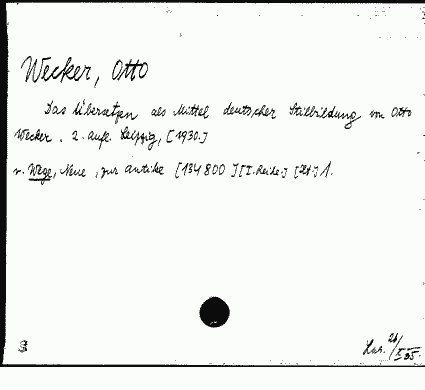 Wecker, Otto
Das Übersetzen als Mittel deutscher Stilbildung von Otto
Wecker. 2. Aufl. Leipzig, [1930.]
v. Wege, Neue, zur Antike [134800] [I. Reihe.] [H.] 1.